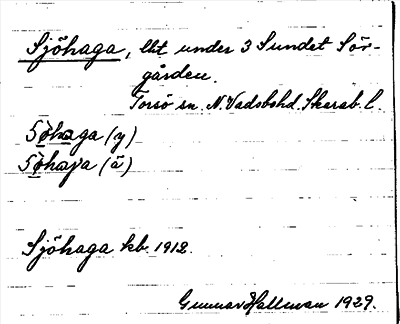 Sjöhaga, lht under 3 Sundet Sör-
gården.
Torsö sn. N. Vadsbohd. Skarab. l.
Söhaga (y)
Söhaja (ä)
Sjöhaga kb. 1918.
Gunnar Hallman 1929.